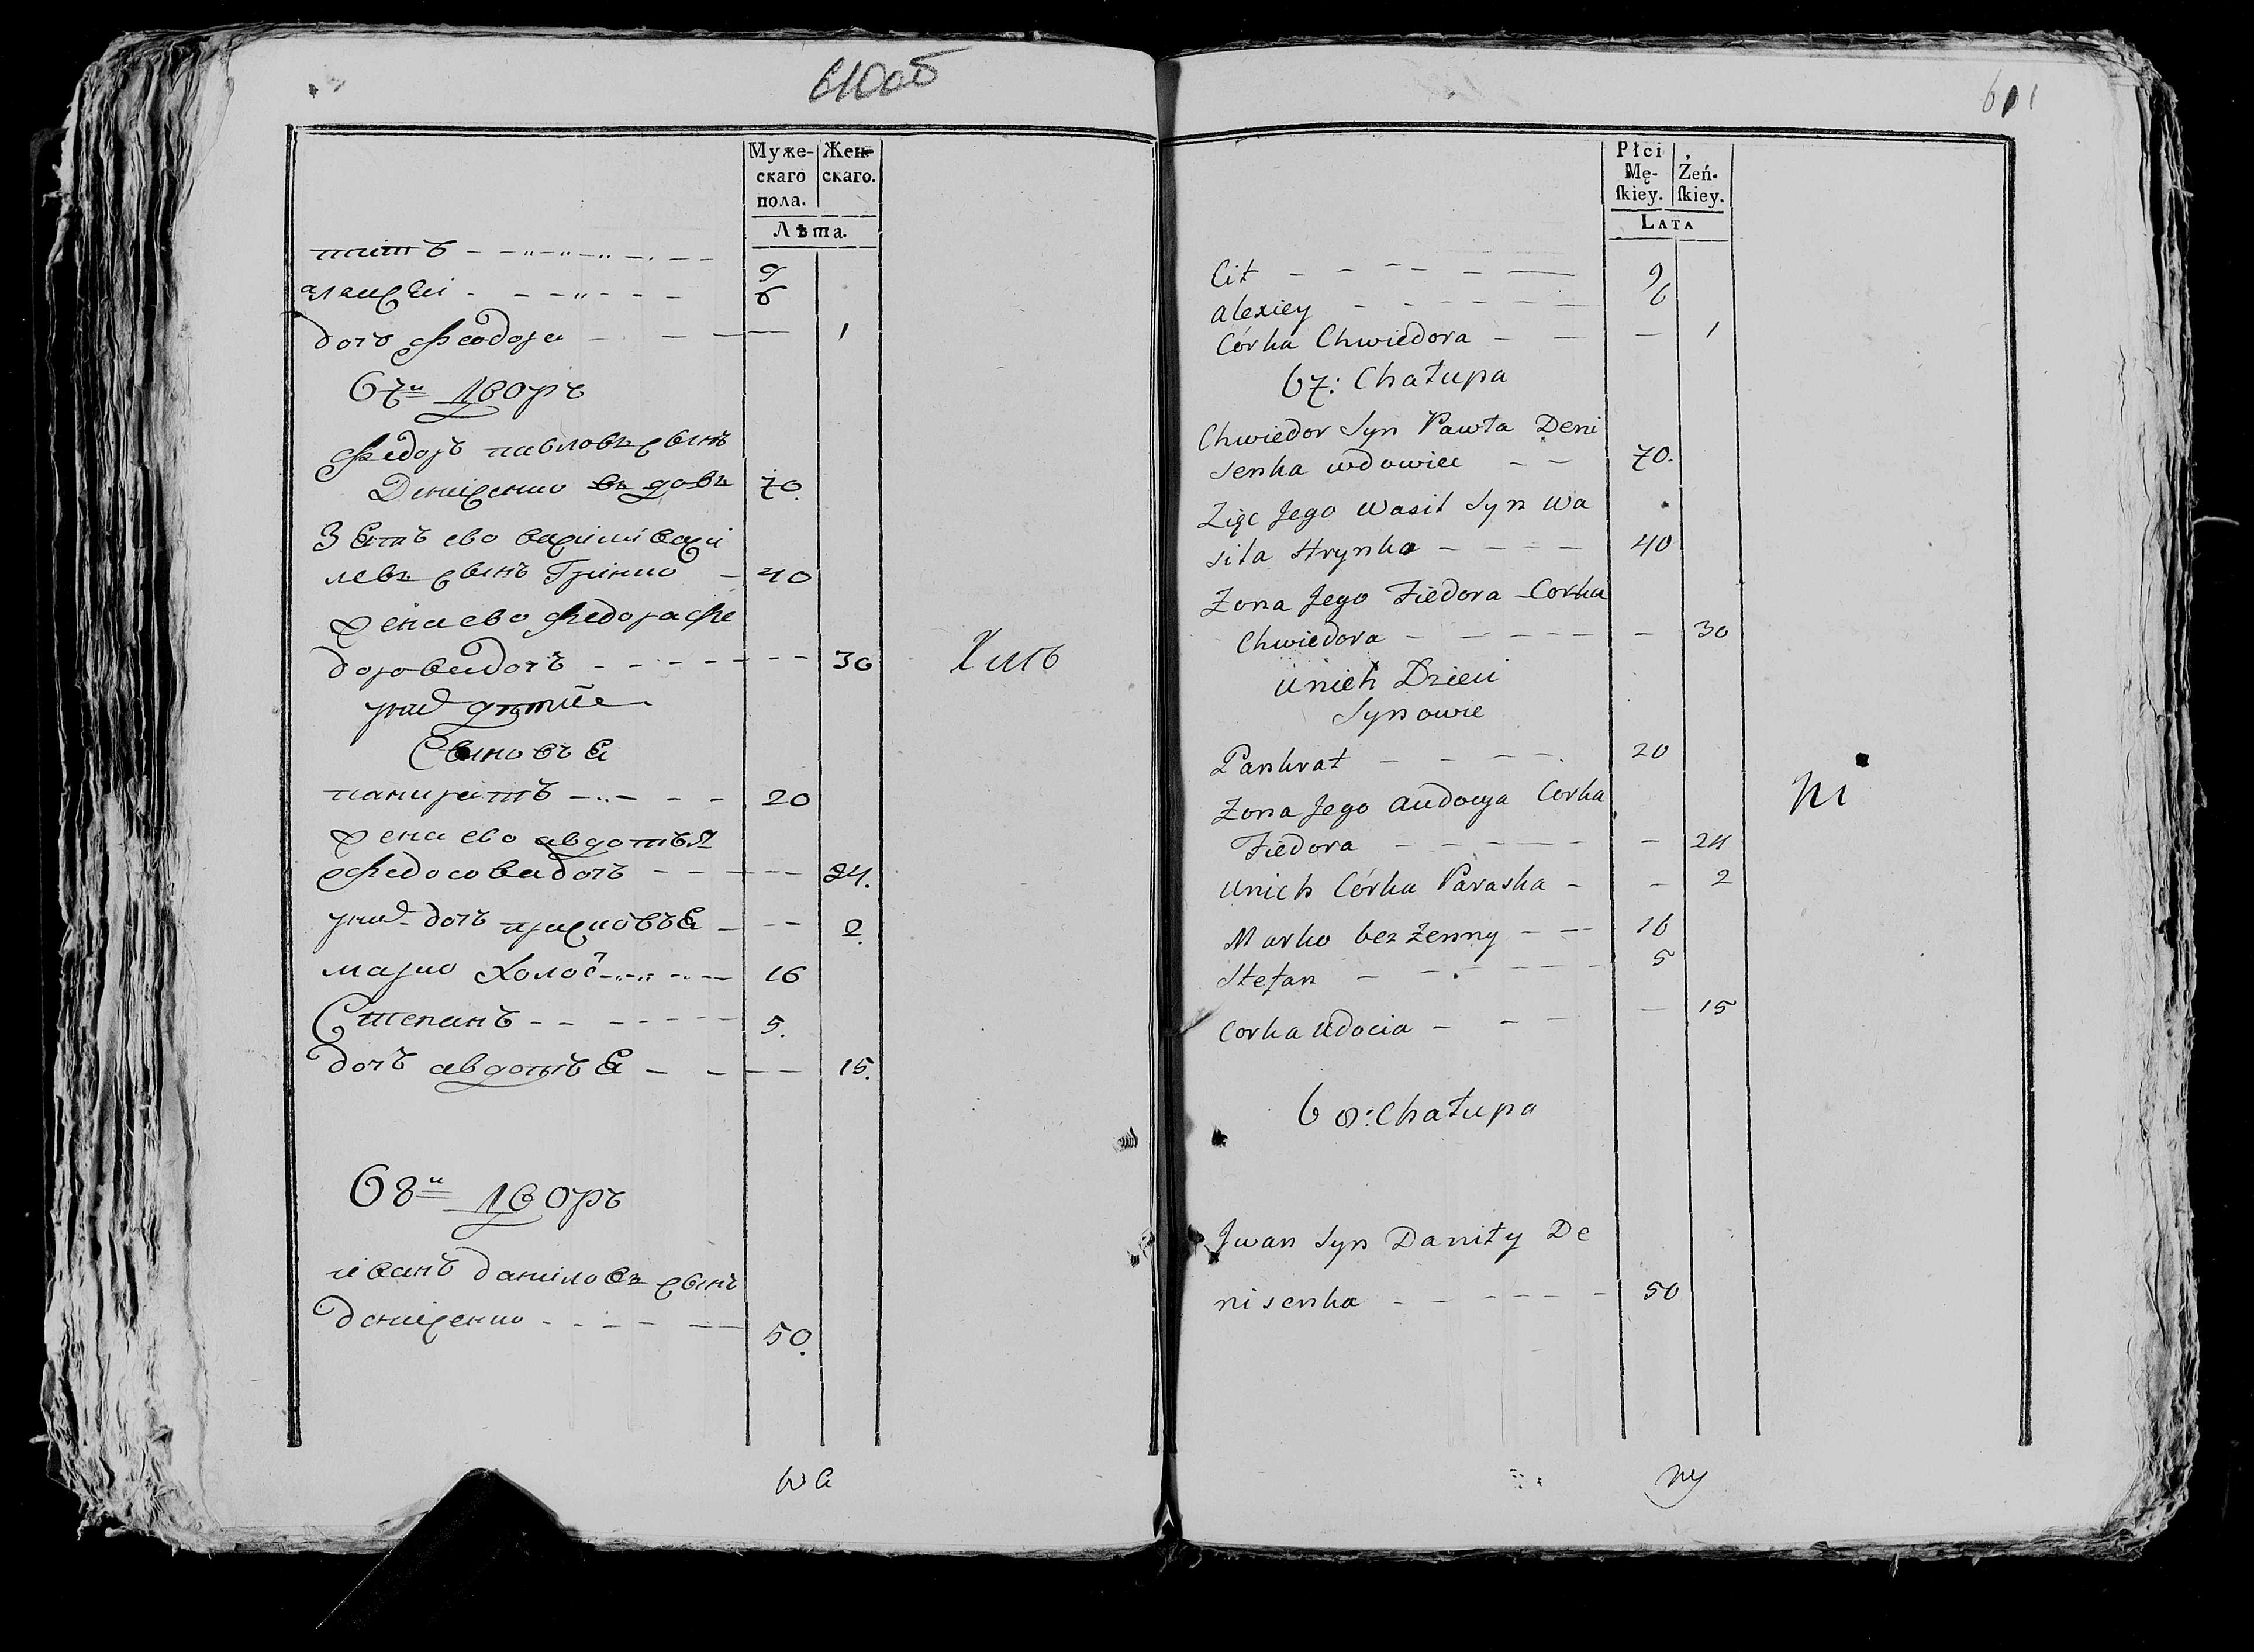 610об
Муже-
скаго
пола.
Жен-
скаго.
Лѣта.
титъ 9
алексеi 6
дочь Феодора 1
67й Дворъ
Федоръ павловъ сынъ
Денисенко въдовъ 70.
Зять ево василi васи
левъ сынъ Гринко 40
жена ево Федора Фе
дорова дочь 30
у них дѣти
Сыновья
панкратъ 20
жена ево авдотья
Федосова дочь 24.
у них дочь 2.
марко холос 16
Степанъ 5.
дочь авдотья 15.
68й Дворъ
иванъ данiловъ сынъ
денисенко 50.
611
Płci
Mę-
skiey.
Żeń-
skiey.
Lata
Cit 9
Alexiey 6
Córka Chwiedora 1
67: Chałupa
Chwiedor Syn Pawła Deni
senka wdowiec 70.
Zięc Jego Wasil Syn Wa
sila Hrynka 40
Zona Jego Fiedora Corka
Chwiedora 30
U nich Dzieci
Synowie
Pankrat 20
Zona Jego Audocya Corka
Fiedora 24
U nich Córka Paraska 2
Marko bez żenny 16
Stefan 5
Corka Udocia 15
ni
68: Chałupa
Jwan Syn Daniły De
nisenka 50